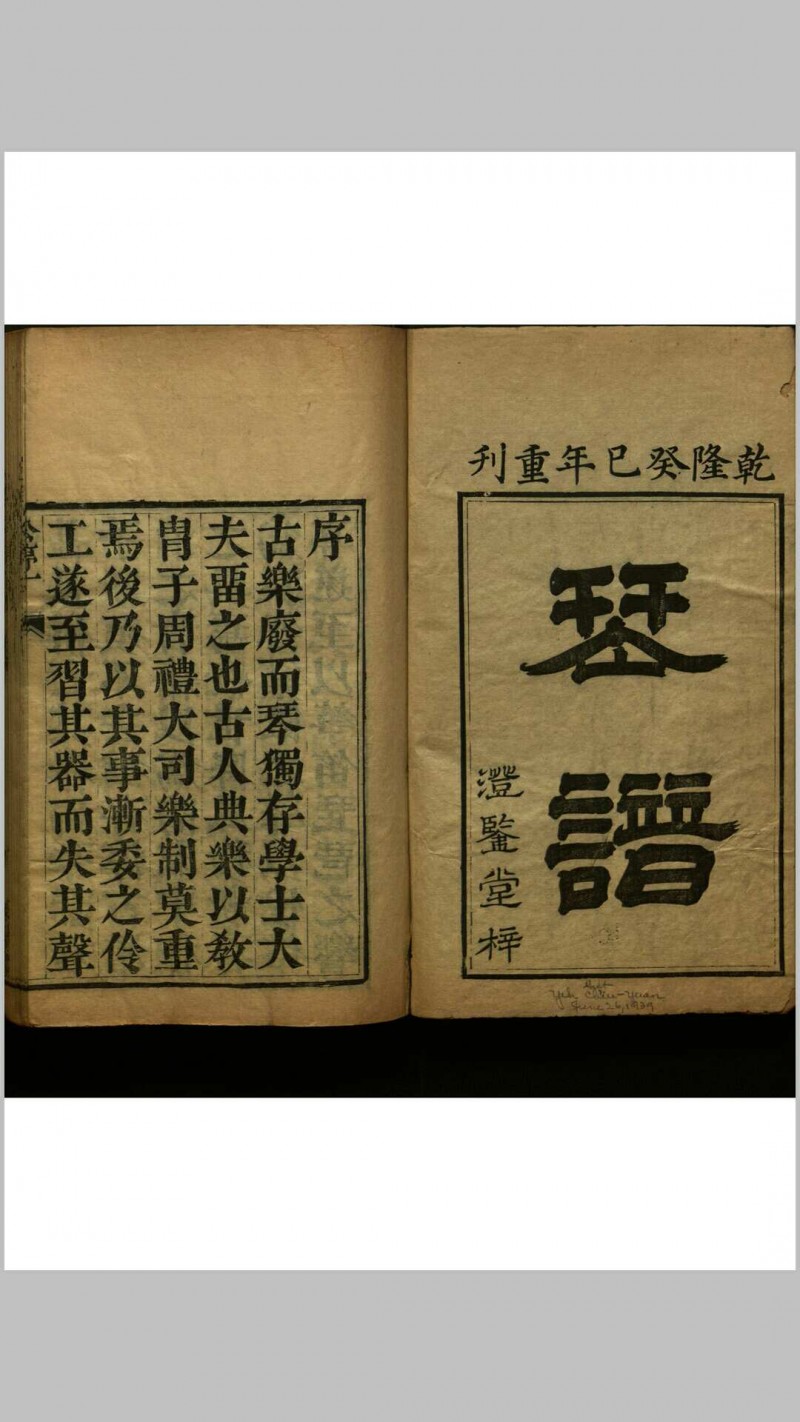 乾隆癸巳年重刊
琴譜
澄鑒堂梓
Gift
Yeh Chiu-Yuan
June 26, 1939
序
古樂廢而琴獨存學士大
夫畱之也古人典樂以敎
胄子周禮大司樂制莫重
焉後乃以其事漸委之伶
工遂至習其器而失其聲